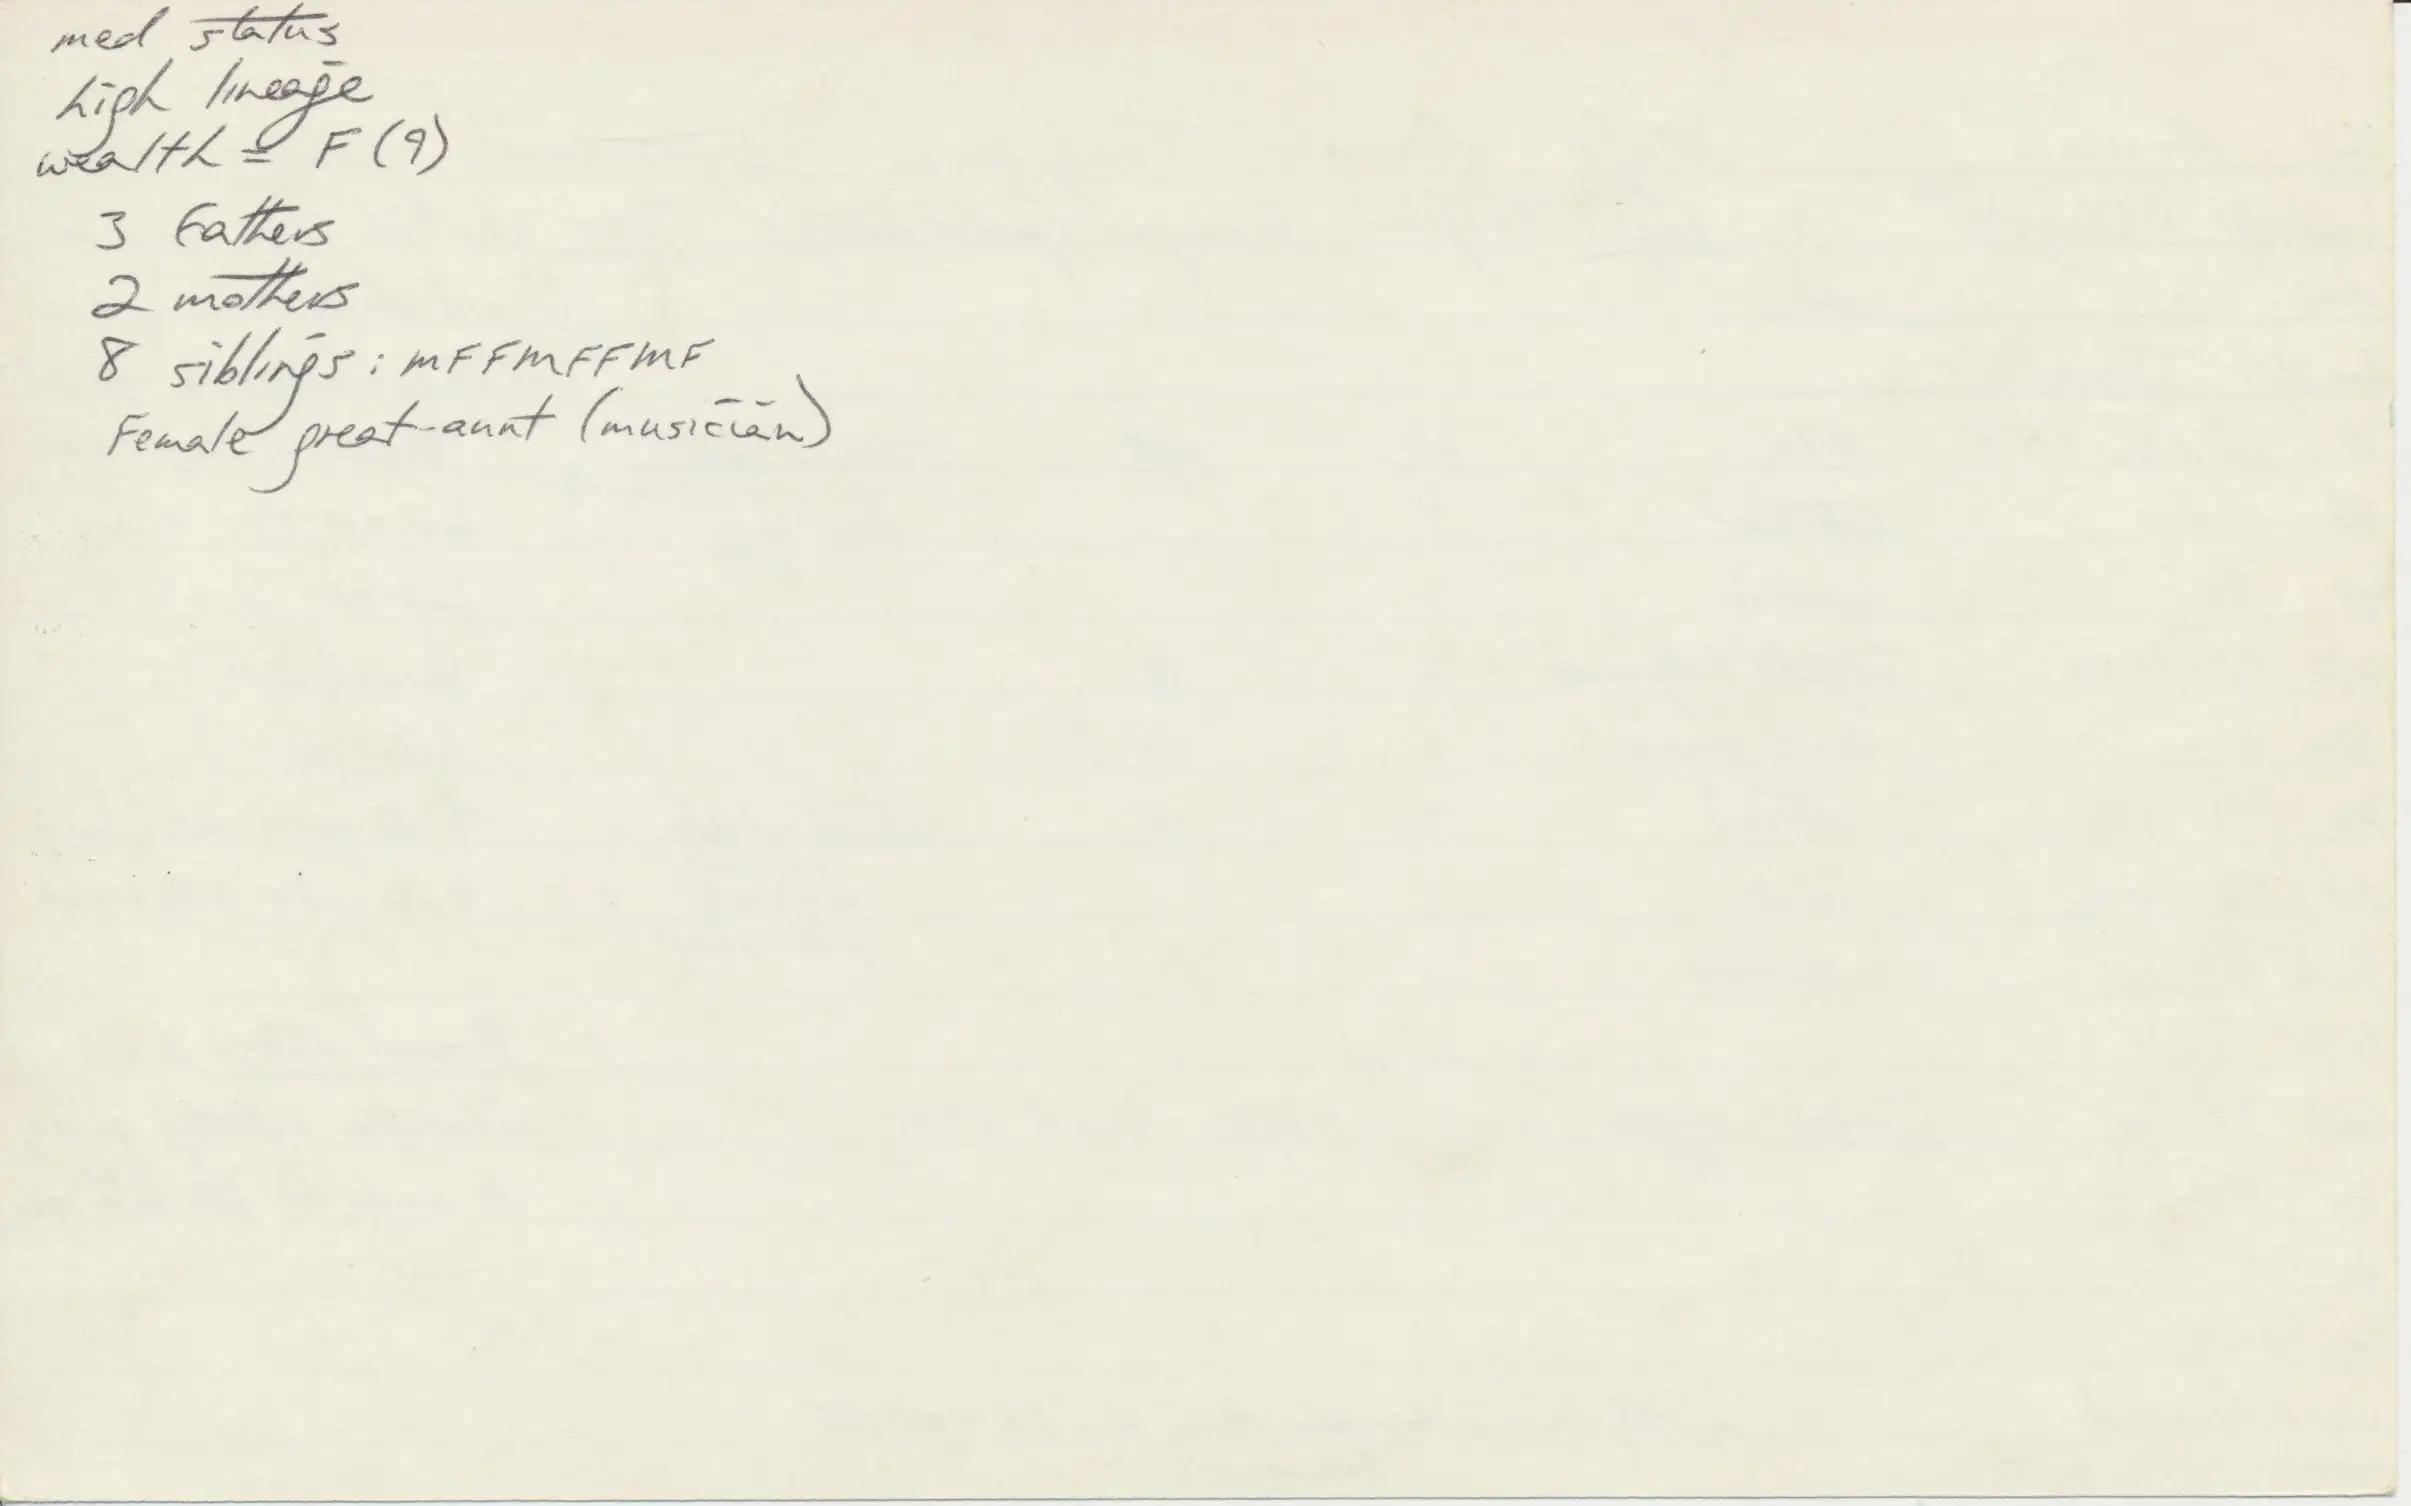 med status
high lineage
wealth = F (9)
3 Fathers
2 mothers
8 siblings : MFFMFFMF
Female great-aunt (musician)